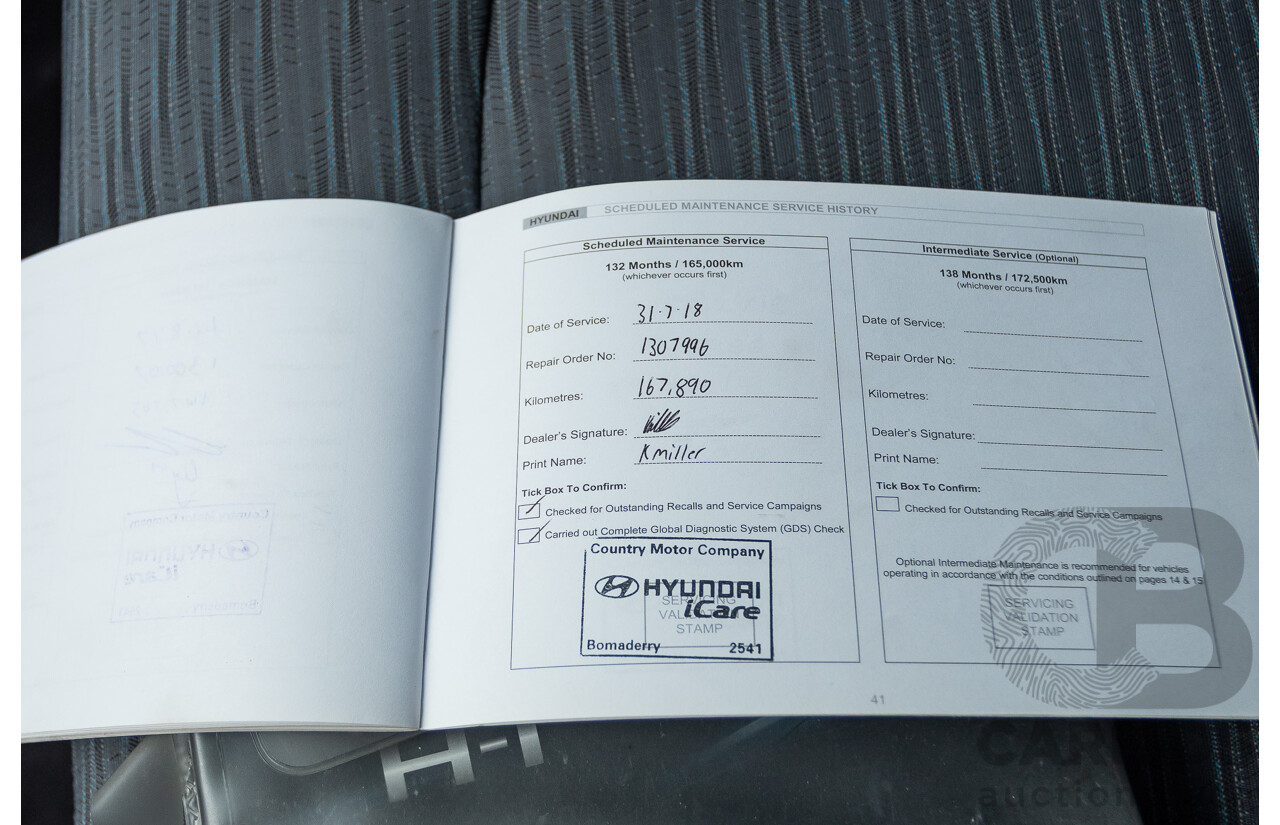 HYUNDAI SCHEDULED MAINTENANCE SERVICE HISTORY
Scheduled Maintenance Service
132 Months / 165,000km
(whichever occurs first)
Date of Service: 31-7-18
Repair Order No: 1307996
Kilometres: 167,890
Dealer's Signature:
Print Name: K Miller
Tick Box To Confirm:
Checked for Outstanding Recalls and Service Campaigns
Carried out Complete Global Diagnostic System (GDS) Check
Country Motor Company
HYUNDAI
iCare
SERVICING
VALIDATION
STAMP
Bomaderry 2541
Intermediate Service (Optional)
138 Months / 172,500km
(whichever occurs first)
Date of Service:
Repair Order No:
Kilometres:
Dealer's Signature:
Print Name:
Tick Box To Confirm:
Checked for Outstanding Recalls and Service Campaigns
Optional Intermediate Maintenance is recommended for vehicles
operating in accordance with the conditions outlined on pages 14 & 15
SERVICING
VALIDATION
STAMP
41